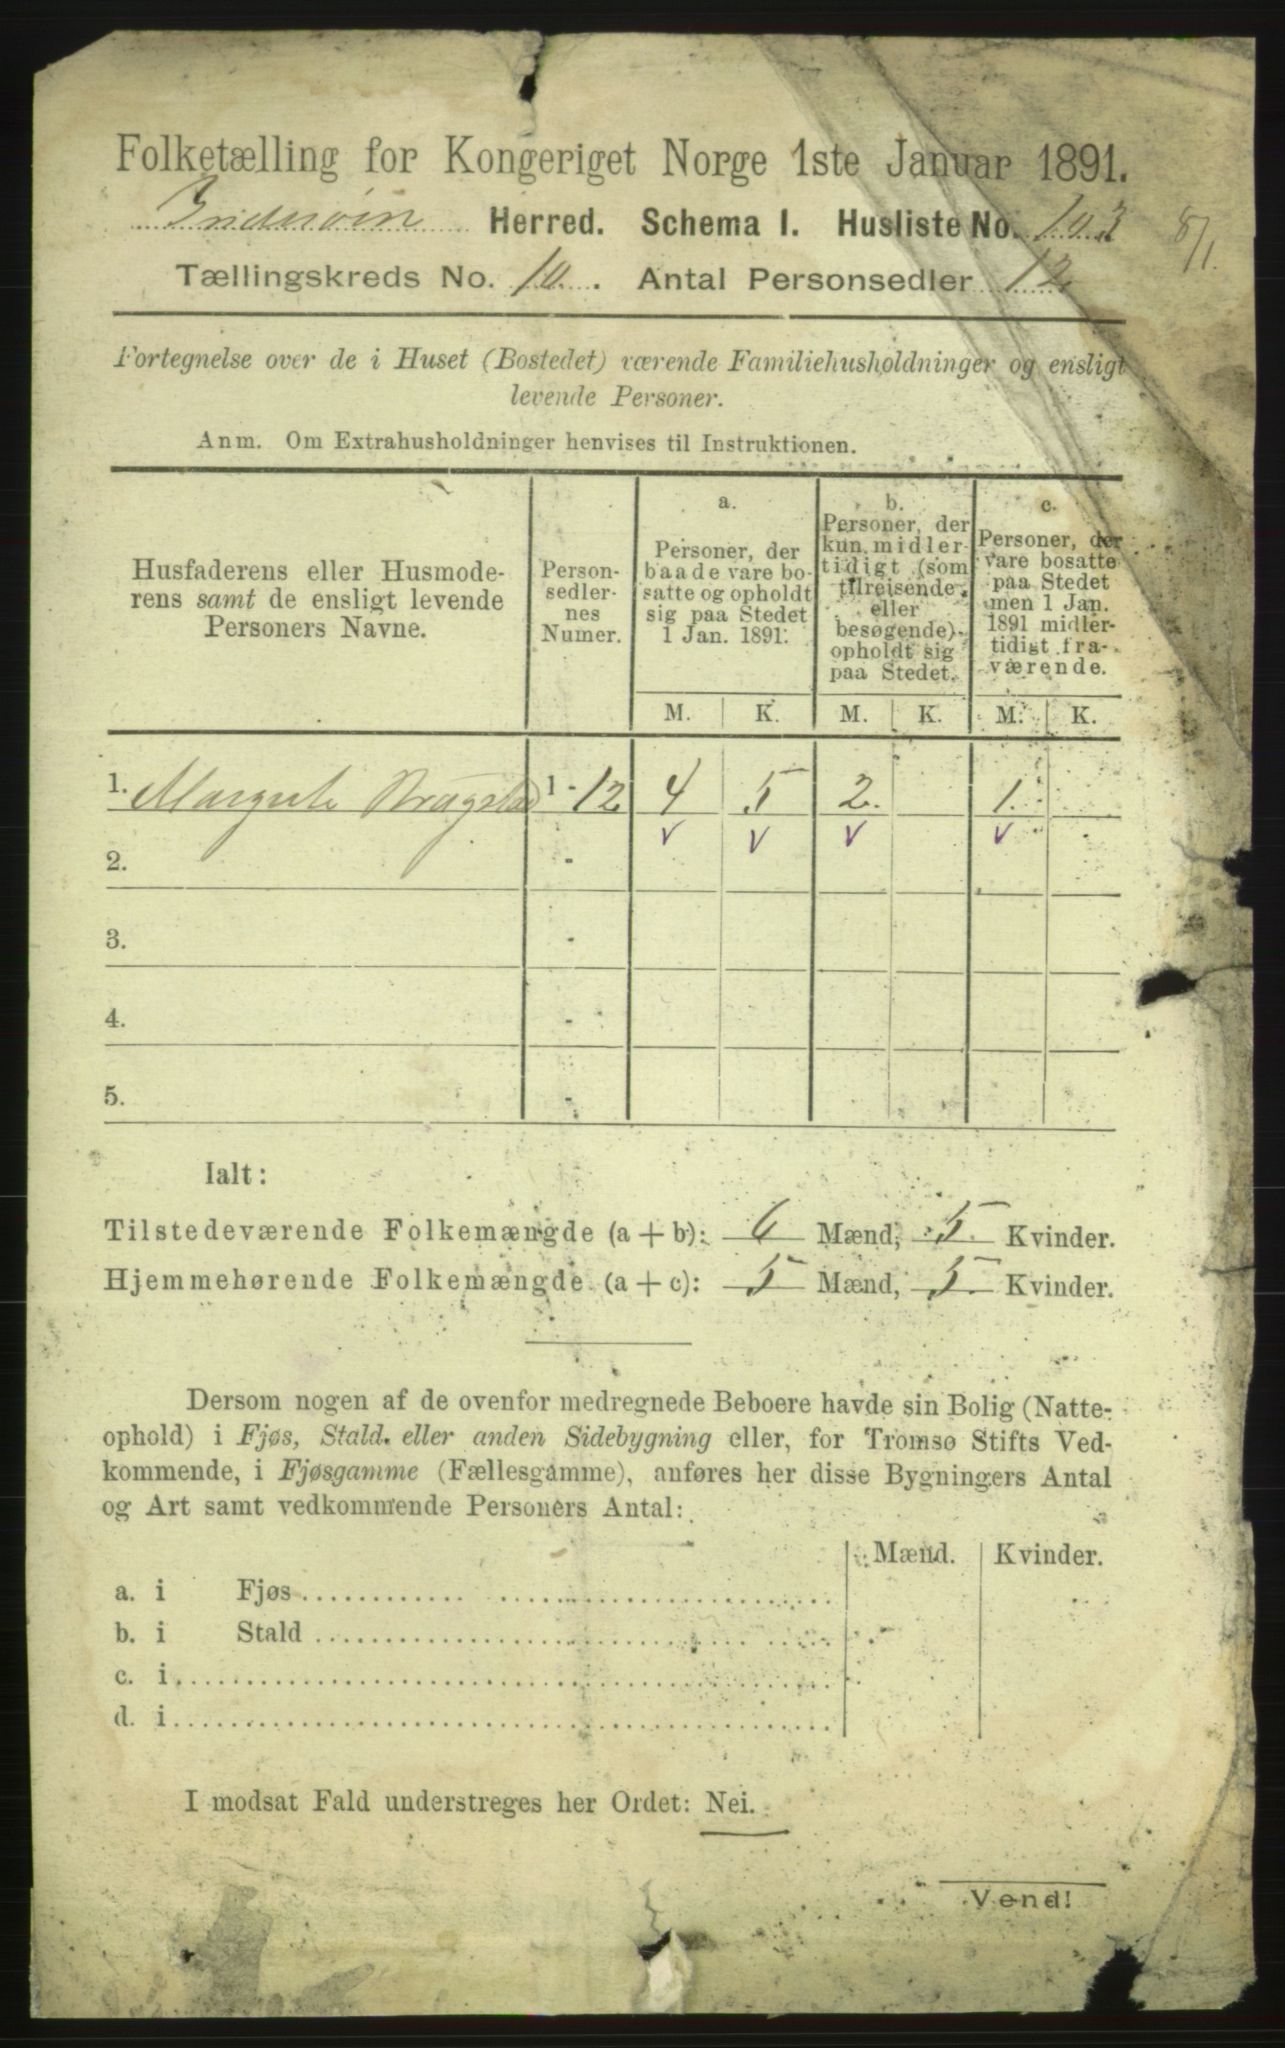 Folketælling for Kongeriget Norge 1ste Januar 1891.
Inderøin Herred. Schema I. Husliste No. 103
8/1.
Tællingskreds No. 10. Antal Personsedler 12
Fortegnelse over de i Huset (Bostedet) værende Familiehusholdninger og ensligt
levende Personer.
Anm. Om Extrahusholdninger henvises til Instruktionen.
Husfaderens eller Husmode-
rens samt de ensligt levende
Personers Navne.
Person-
sedler-
nes
Numer.
a.
Personer, der
baade vare bo-
satte og opholdt
sig paa Stedet
1 Jan. 1891.
b.
Personer, der
kun midler-
tidigt (som
tilreisende
eller
besøgende)
opholdt sig
paa Stedet.
c.
Personer, der
vare bosatte
paa Stedet
men 1 Jan.
1891 midler-
tidigt fra-
værende.
M. K. M. K. M. K.
1. Margrete Brugstad 1 - 12 4 5 2. 1.
v v v v
2. -
3. -
4. -
5. -
Ialt:
Tilstedeværende Folkemængde (a + b): 6 Mænd, 5. Kvinder.
Hjemmehørende Folkemængde (a + c): 5 Mænd, 5. Kvinder.
Dersom nogen af de ovenfor medregnede Beboere havde sin Bolig (Natte-
ophold) i Fjøs, Stald eller anden Sidebygning eller, for Tromsø Stifts Ved-
kommende, i Fjøsgamme (Fællesgamme), anføres her disse Bygningers Antal
og Art samt vedkommende Personers Antal:
Mænd. Kvinder.
a. i Fjøs
b. i Stald
c. i
d. i
I modsat Fald understreges her Ordet: Nei.
Vend!